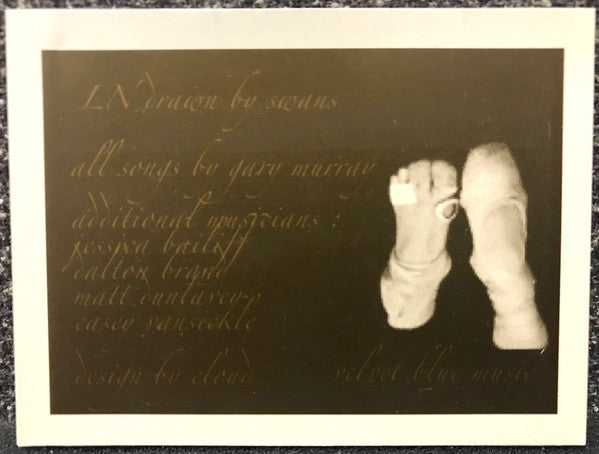 LN drawn by swans
all songs by gary murray
additional musicians :
jessica bailiff
dalton brand
matt
casey vansickle
design by cloud
velvet blue music